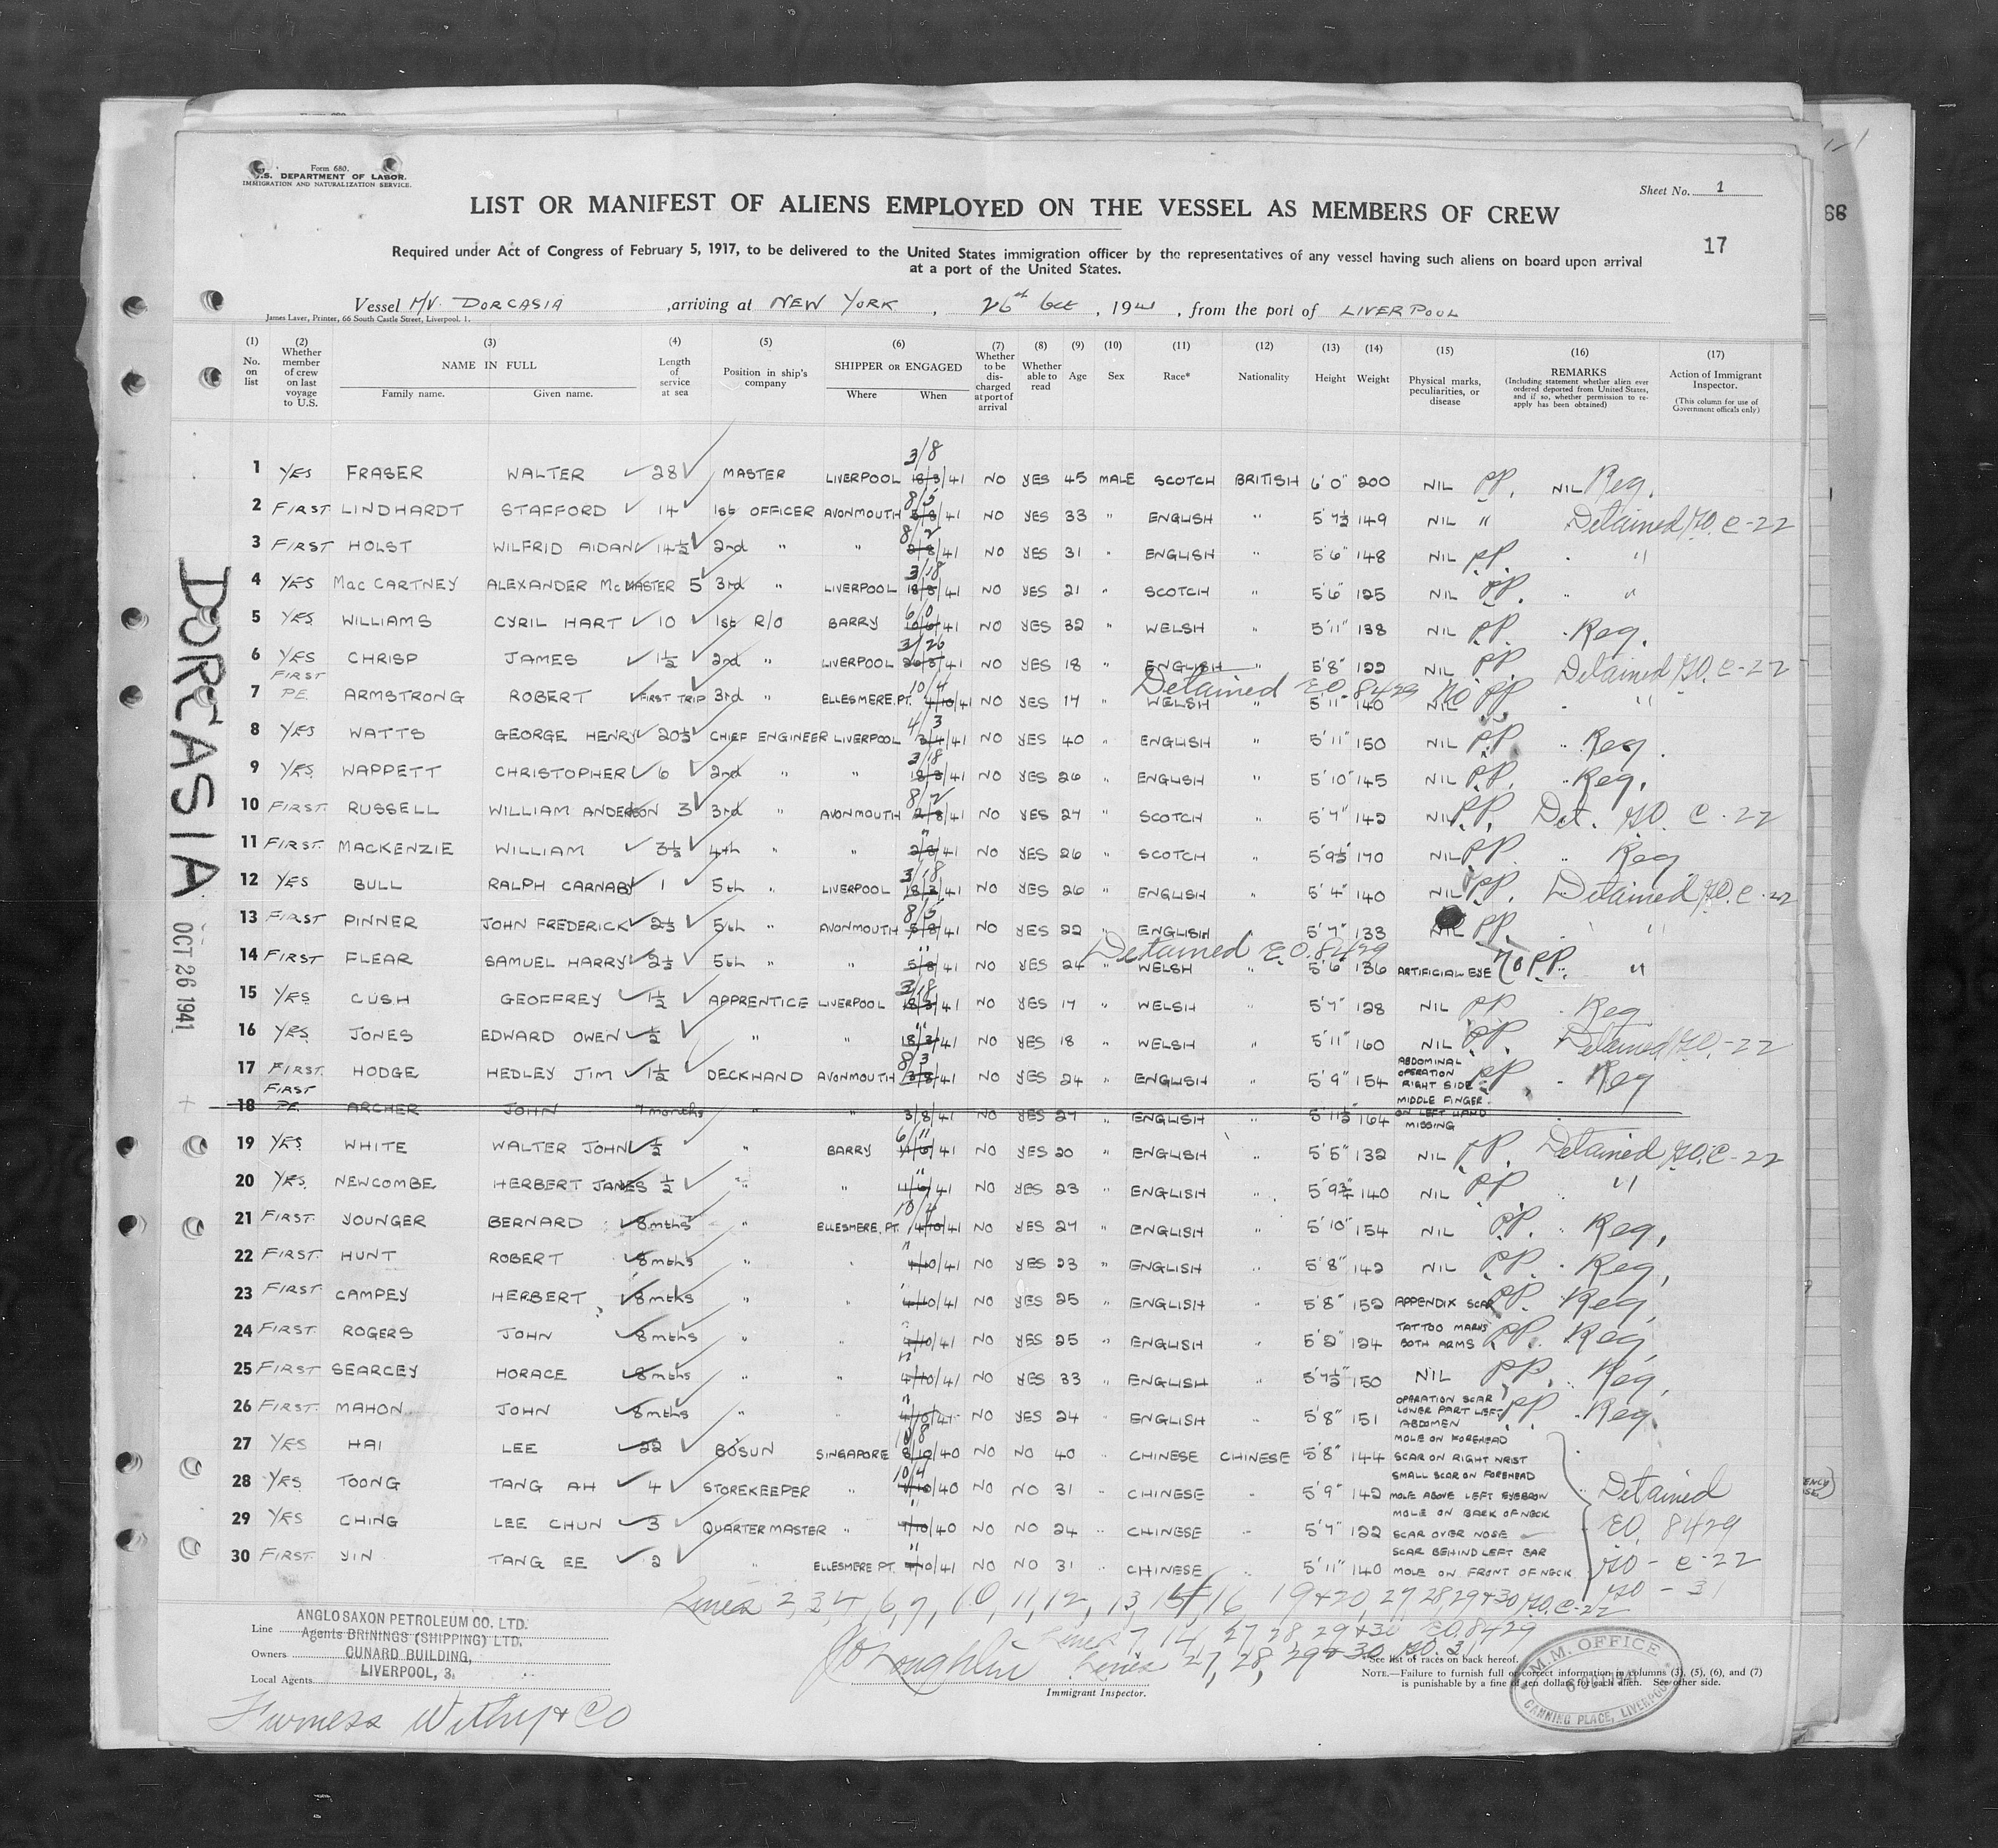 Form 680.
U.S. DEPARTMENT OF LABOR.
IMMIGRATION AND NATURALIZATION SERVICE.
Sheet No. 1
LIST OR MANIFEST OF ALIENS EMPLOYED ON THE VESSEL AS MEMBERS OF CREW
17
Required under Act of Congress of February 5, 1917, to be delivered to the United States immigration officer by the representatives of any vessel having such aliens on board upon arrival
at a port of the United States.
Vessel M/V. DORCASIA , arriving at NEW YORK , 26th Oct , 1941 , from the port of LIVERPOOL
James Laver, Printer, 66 South Castle Street, Liverpool. 1.
(1) No. on list (2) Whether member of crew on last voyage to U.S. (3) NAME IN FULL Family name. Given name. (4) Length of service at sea (5) Position in ship's company (6) SHIPPER OR ENGAGED Where When (7) Whether to be discharged at port of arrival (8) Whether able to read (9) Age (10) Sex (11) Race* (12) Nationality (13) Height (14) Weight (15) Physical marks, peculiarities, or disease (16) REMARKS (Including statement whether alien ever ordered deported from United States, and if so, whether permission to re-apply has been obtained) (17) Action of Immigrant Inspector. (This column for use of Government officals only)
1 YES FRASER WALTER 28 MASTER LIVERPOOL 3/18 18/3/41 NO YES 45 MALE SCOTCH BRITISH 6'0" 200 NIL PP. NIL Reg.
2 FIRST LINDHARDT STAFFORD 14 1st OFFICER AVONMOUTH 8/5 5/8/41 NO YES 33 " ENGLISH " 5'7½ 149 NIL " Detained GO. C-22
3 FIRST HOLST WILFRID AIDAN 14½ 2nd " " 8/2 2/8/41 NO YES 31 " ENGLISH " 5'6" 148 NIL PP. "
4 YES MacCARTNEY ALEXANDER McMASTER 5 3rd " LIVERPOOL 3/18 18/3/41 NO YES 21 " SCOTCH " 5'6" 125 NIL PP. " "
5 YES WILLIAMS CYRIL HART 10 1st R/O BARRY 41 NO YES 32 " WELSH " 5'11" 138 NIL PP. Reg.
6 YES CHRISP JAMES 1½ 2nd " LIVERPOOL 3/26 26/3/41 NO YES 18 " ENGLISH " 5'8" 122 NIL PP. Detained GO. C-22
7 FIRST PE. ARMSTRONG ROBERT FIRST TRIP 3rd " ELLESMERE.PT. 10/4 4/10/41 NO YES 17 " WELSH 5'11" 140 NIL No PP "
Detained E.O. 8429
8 YES WATTS GEORGE HENRY 20½ CHIEF ENGINEER LIVERPOOL 4/3 3/4/41 NO YES 40 " ENGLISH " 5'11" 150 NIL PP. " Reg.
9 YES WAPPETT CHRISTOPHER 6 2nd " " 3/18 18/3/41 NO YES 26 " ENGLISH " 5'10" 145 NIL PP. " Reg.
10 FIRST. RUSSELL WILLIAM ANDERSON 3 3rd " AVONMOUTH 8/2 2/8/41 NO YES 24 " SCOTCH " 5'7" 142 NIL PP. Det. GO. C-22
11 FIRST. MACKENZIE WILLIAM 3½ 4th " " " 2/8/41 NO YES 26 " SCOTCH " 5'9½ 170 NIL PP. " Reg
12 YES BULL RALPH CARNABY 1 5th " LIVERPOOL 3/18 18/3/41 NO YES 26 " ENGLISH " 5'4" 140 NIL PP. Detained GO. C-22
13 FIRST PINNER JOHN FREDERICK 2½ 5th " AVONMOUTH 8/5 5/8/41 NO YES 22 " ENGLISH 5'7" 133 NIL PP. "
Detained E.O. 8429
14 FIRST FLEAR SAMUEL HARRY 2½ 5th " " " 5/8/41 NO YES 24 WELSH 5'6 136 ARTIFICIAL EYE No PP. "
15 YES CUSH GEOFFREY 1½ APPRENTICE LIVERPOOL 3/18 18/3/41 NO YES 17 " WELSH " 5'7" 128 NIL PP. Reg
16 YES JONES EDWARD OWEN ½ " " " 18/3/41 NO YES 18 " WELSH " 5'11" 160 NIL PP. Detained GO.-22
17 FIRST. HODGE HEDLEY JIM 1½ DECKHAND AVONMOUTH 8/3 3/8/41 NO YES 24 " ENGLISH " 5'9" 154 ABDOMINAL OPERATION RIGHT SIDE PP. Reg
18 FIRST PE. ARCHER JOHN 7 months " " 3/8/41 NO YES 27 ENGLISH 5'11½ 164 MIDDLE FINGER ON LEFT HAND MISSING
19 YES WHITE WALTER JOHN ½ " BARRY 6/11 41 NO YES 20 " ENGLISH " 5'5" 132 NIL PP. Detained GO. C-22
20 YES. NEWCOMBE HERBERT JAMES ½ " " " 41 NO YES 23 " ENGLISH " 5'9¾ 140 NIL PP "
21 FIRST. YOUNGER BERNARD 8mths " ELLESMERE.PT. 10/4 4/10/41 NO YES 27 " ENGLISH " 5'10" 154 NIL PP. " Reg,
22 FIRST. HUNT ROBERT 8mths " " " 4/10/41 NO YES 23 " ENGLISH " 5'8" 142 NIL PP. Reg,
23 FIRST CAMPEY HERBERT 8mths " " " 4/10/41 NO YES 25 " ENGLISH " 5'8" 152 APPENDIX SCAR PP. Reg,
24 FIRST. ROGERS JOHN 8mths " " " 4/10/41 NO YES 25 " ENGLISH " 5'2" 124 TATTOO MARKS BOTH ARMS PP. Reg,
25 FIRST SEARCEY HORACE 8mths " " " 4/10/41 NO YES 33 " ENGLISH " 5'7½" 150 NIL PP. Reg,
26 FIRST. MAHON JOHN 8mths " " " 4/10/41 NO YES 24 " ENGLISH " 5'8" 151 OPERATION SCAR LOWER PART LEFT ABDOMEN PP Reg.
27 YES HAI LEE 22 BOSUN SINGAPORE 10/8 8/10/40 NO NO 40 " CHINESE CHINESE 5'8" 144 MOLE ON FOREHEAD SCAR ON RIGHT WRIST
28 YES TOONG TANG AH 4 STOREKEEPER " 10/4 10/40 NO NO 31 " CHINESE " 5'9" 142 SMALL SCAR ON FOREHEAD MOLE ABOVE LEFT EYEBROW Detained
29 YES CHING LEE CHUN 3 QUARTERMASTER " 10/40 NO NO 24 " CHINESE " 5'7" 122 MOLE ON BACK OF NECK SCAR OVER NOSE EO. 8429
30 FIRST. YIN TANG EE 2 " ELLESMERE PT. " 4/10/41 NO NO 31 " CHINESE " 5'11" 140 SCAR BEHIND LEFT EAR MOLE ON FRONT OF NECK GO - C-22
GO - 31
Lines 2, 3, 4, 6, 7, 10, 11, 12, 13, 14, 16 19+20, 27 28, 29+30 GO. C-22
Lines 7, 14, 27 28 29+30 E.O. 8429
Lines 27, 28, 29+30 GO. 31
Line ANGLO SAXON PETROLEUM CO. LTD.
Agents BRININGS (SHIPPING) LTD.
Owners CUNARD BUILDING,
LIVERPOOL, 3.
Local Agents
Furness Withy & Co
Immigrant Inspector.
*See list of races on back hereof.
NOTE.—Failure to furnish full or correct information in columns (3), (5), (6), and (7)
is punishable by a fine of ten dollars for each alien. See other side.
M.M. OFFICE
CANNING PLACE, LIVERPOOL
DORCASIA
OCT 26 1941
66